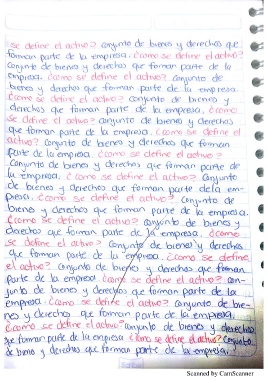 se define el activo? conjunto de bienes y derechos que
forman parte de la empresa. ¿como se define el activo?
conjunto de bienes y derechos que forman parte de la
empresa. ¿como se define el activo? conjunto de
bienes y derechos que forman parte de la empresa.
¿como se define el activo? conjunto de bienes y
derechos que forman parte de la empresa. ¿como
se define el activo? conjunto de bienes y derechos
que forman parte de la empresa. ¿como se define el
activo? conjunto de bienes y derechos que forman
parte de la empresa. ¿como se define el activo?
conjunto de bienes y derechos que forman parte de
la empresa. ¿como se define el activo? conjunto
de bienes y derechos que forman parte de la em-
presa. ¿como se define el activo? conjunto de
bienes y derechos que forman parte de la empresa.
¿como se define el activo? conjunto de bienes y
derechos que forman parte de la empresa. ¿como
se define el activo? conjunto de bienes y derechos
que forman parte de la empresa. ¿como se define
el activo? conjunto de bienes y derechos que forman
parte de la empresa. ¿como se define el activo? con-
junto de bienes y derechos que forman parte de la
empresa. ¿como se define el activo? conjunto de bie-
nes y derechos que forman parte de la empresa.
¿como se define el activo? conjunto de bienes y derechos
que forman parte de la empresa ¿como se define el activo? conjunto
de bienes y derechos que forman parte de la empresa.
Scanned by CamScanner